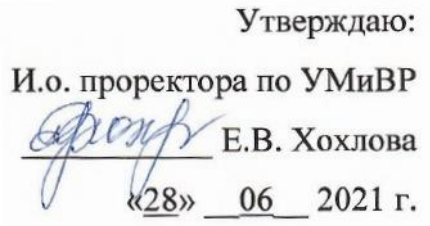 Утверждаю:
И.о. проректора по УМиВР
Е.В. Хохлова
«28» 06 2021 г.